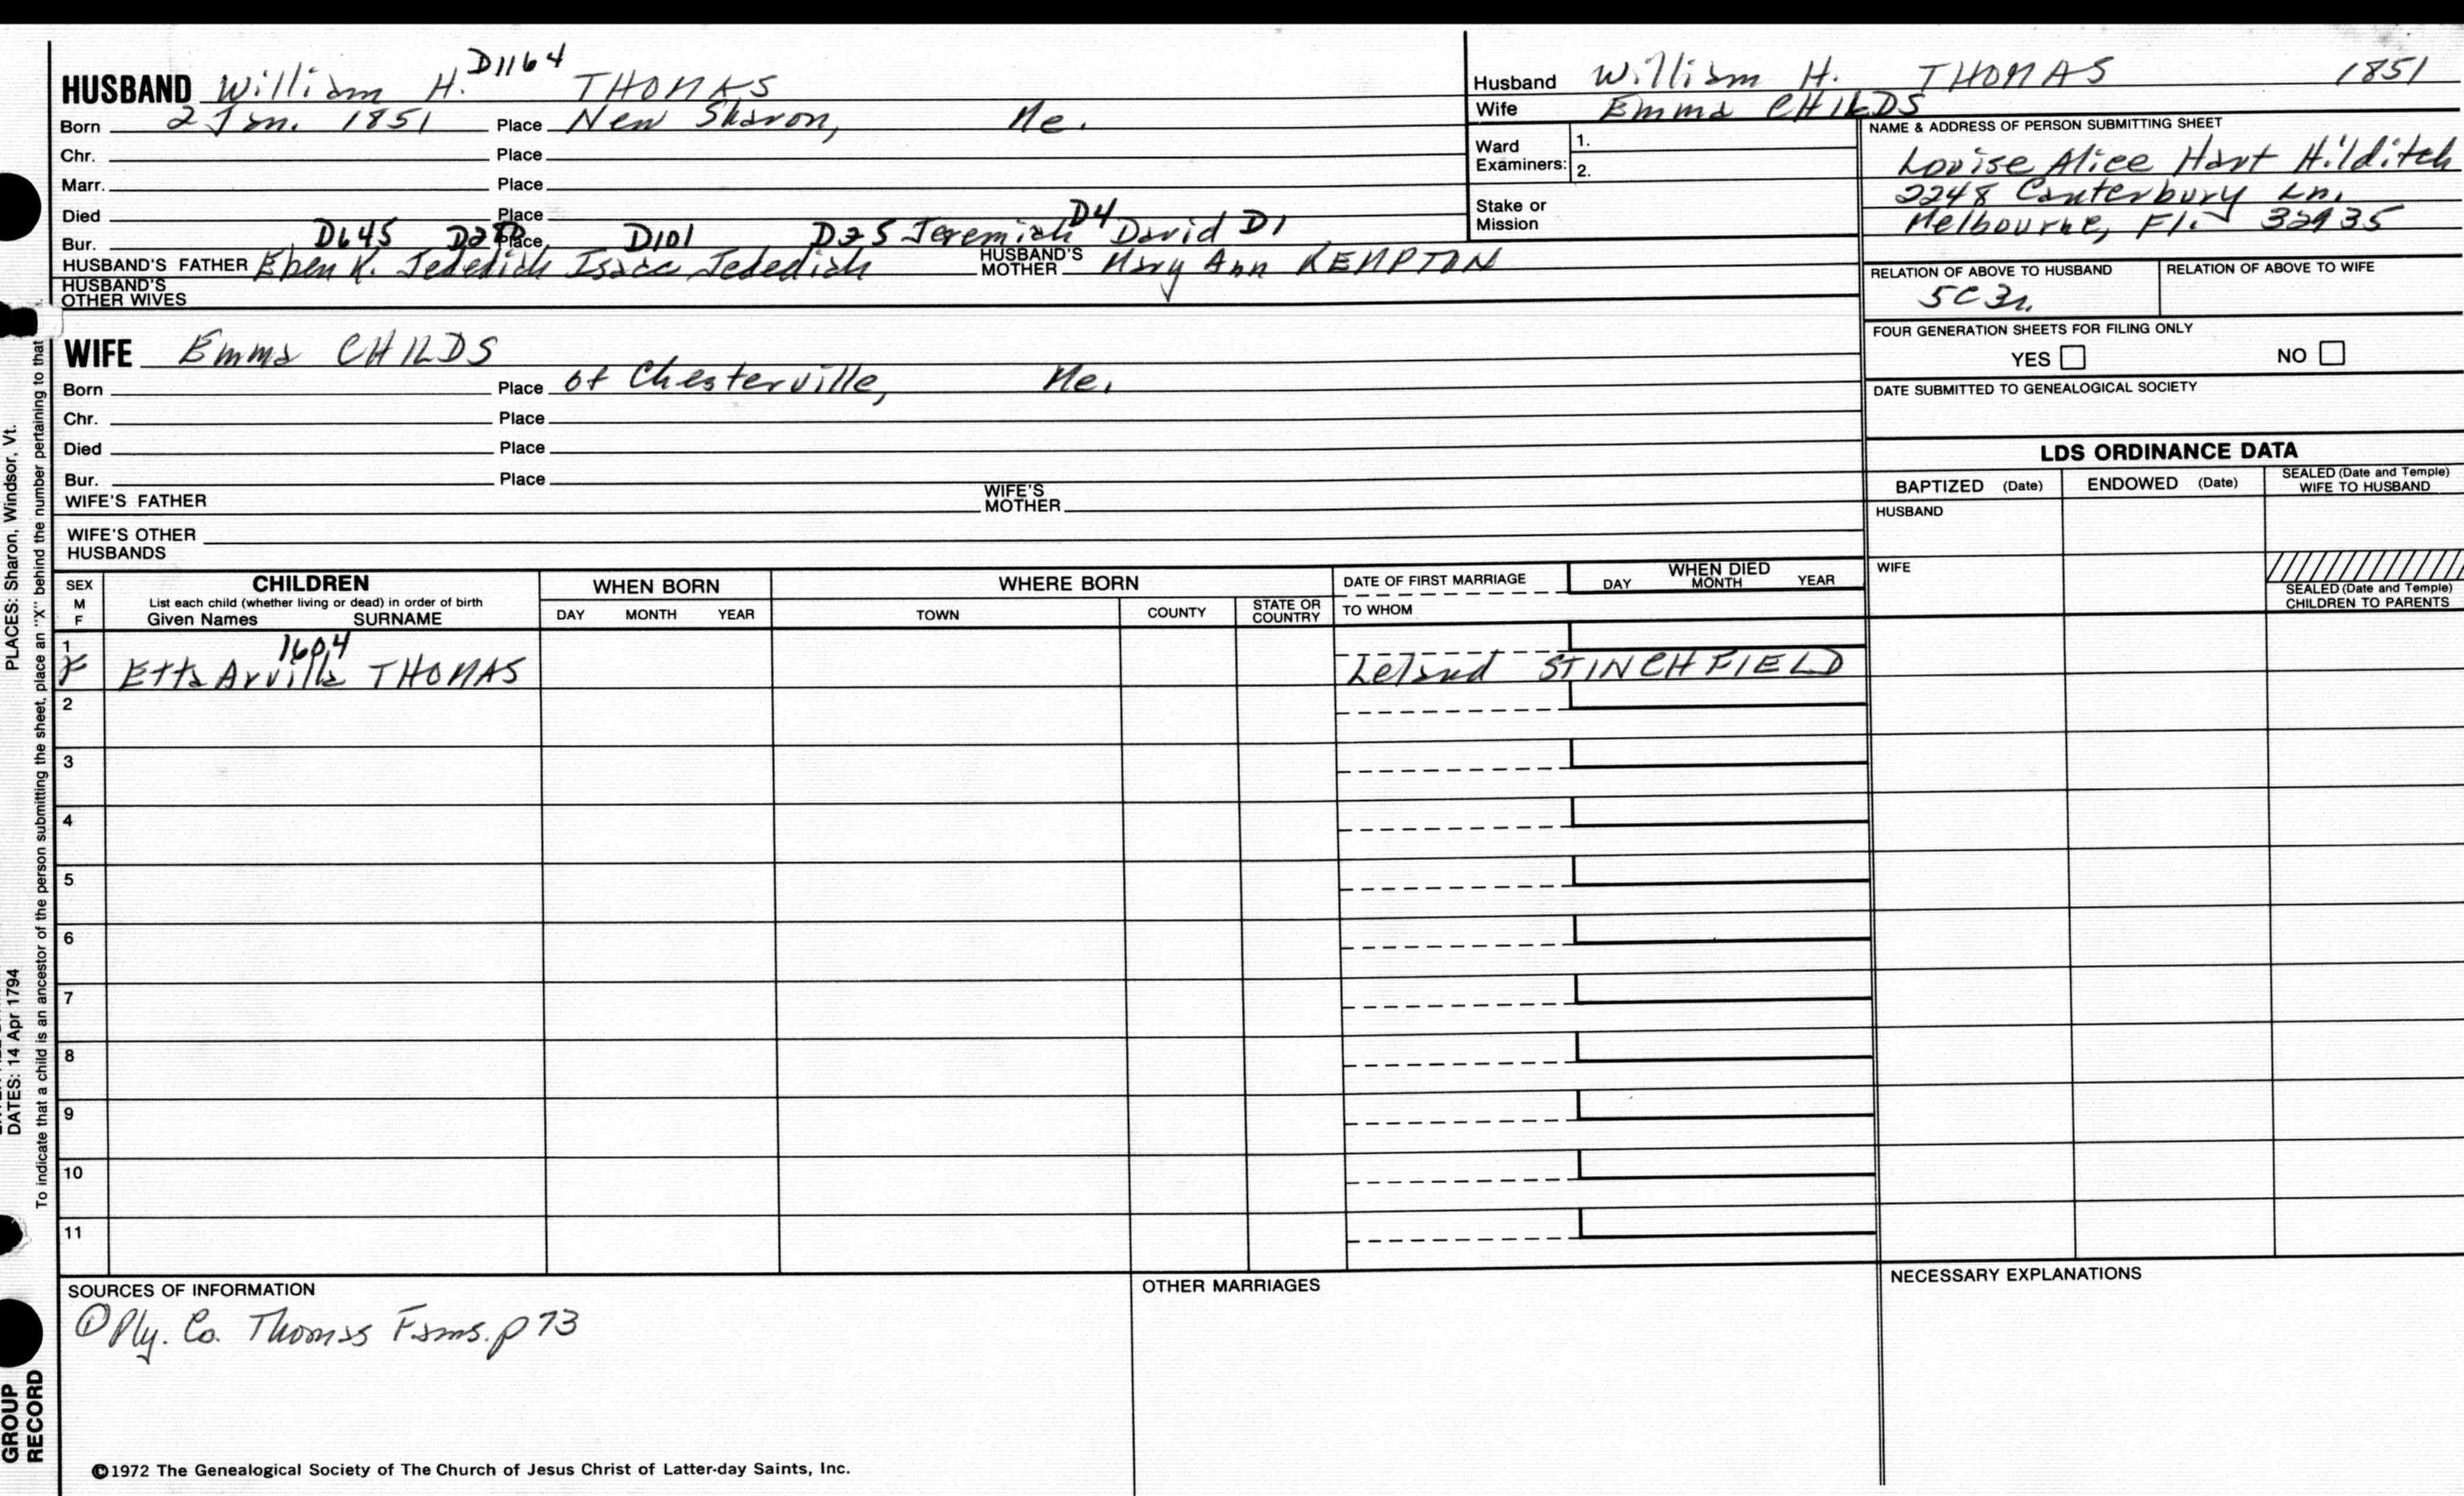 D1164
HUSBAND William H. THOMAS
Born 2 Jan. 1851 Place New Sharon, Me.
Chr. Place
Marr. Place
Died Place
Bur. Place
D645 D101 D25 Jeremiah D4 David D1
HUSBAND'S FATHER Eben K. Jedediah Isaac Jedediah HUSBAND'S MOTHER Mary Ann KEMPTON
HUSBAND'S OTHER WIVES
Husband William H. THOMAS 1851
Wife Emma CHILDS
Ward Examiners: 1.
2.
Stake or Mission
NAME & ADDRESS OF PERSON SUBMITTING SHEET
Louise Alice Hart Hilditch
2248 Canterbury Ln.
Melbourne, Fl. 32935
RELATION OF ABOVE TO HUSBAND RELATION OF ABOVE TO WIFE
5C3r.
FOUR GENERATION SHEETS FOR FILING ONLY
YES NO
DATE SUBMITTED TO GENEALOGICAL SOCIETY
WIFE Emma CHILDS
Born Place of Chesterville, Me.
Chr. Place
Died Place
Bur. Place
WIFE'S FATHER WIFE'S MOTHER
WIFE'S OTHER HUSBANDS
LDS ORDINANCE DATA
BAPTIZED (Date) ENDOWED (Date) SEALED (Date and Temple) WIFE TO HUSBAND
HUSBAND
WIFE
SEALED (Date and Temple) CHILDREN TO PARENTS
SEX M F CHILDREN WHEN BORN WHERE BORN DATE OF FIRST MARRIAGE WHEN DIED
List each child (whether living or dead) in order of birth
Given Names SURNAME DAY MONTH YEAR TOWN COUNTY STATE OR COUNTRY TO WHOM DAY MONTH YEAR
1 1604
F Etta Arvilla THOMAS Leland STINCHFIELD
2
3
4
5
6
7
8
9
10
11
SOURCES OF INFORMATION OTHER MARRIAGES NECESSARY EXPLANATIONS
① Ply. Co. Thomas Fams. p 73
©1972 The Genealogical Society of The Church of Jesus Christ of Latter-day Saints, Inc.
PLACES: Sharon, Windsor, Vt.
DATES: 14 Apr 1794
To indicate that a child is an ancestor of the person submitting the sheet, place an "X" behind the number pertaining to that
GROUP
RECORD